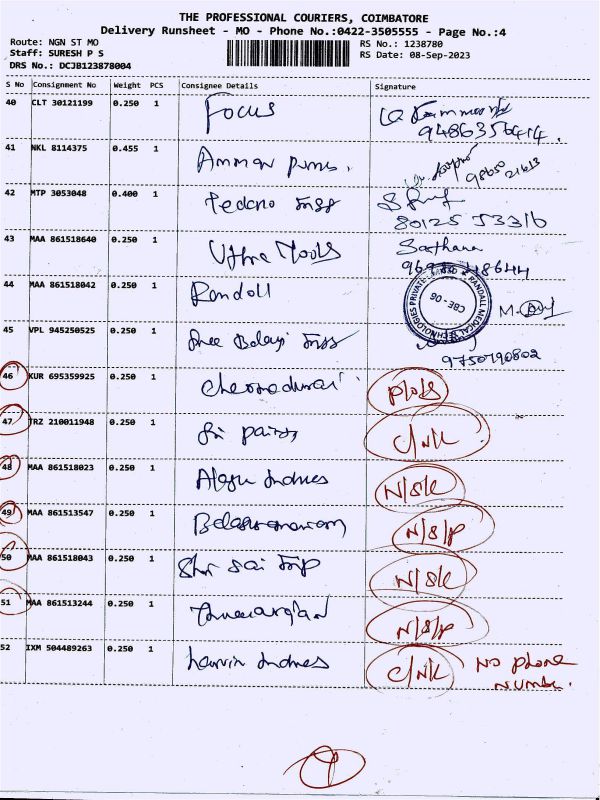 THE PROFESSIONAL COURIERS, COIMBATORE
Delivery Runsheet - MO - Phone No.:0422-3505555 - Page No.:4
Route: NGN ST MO RS No.: 1238780
Staff: SURESH P S RS Date: 08-Sep-2023
DRS No.: DCJB123878004
S No Consignment No Weight PCS Consignee Details Signature
40 CLT 30121199 0.250 1 Focus
9486356414.
41 NKL 8114375 0.455 1 Amman
98650 21613
42 MTP 3053048 0.400 1
80125 53316
43 MAA 861518640 0.250 1 Ultra Tools Sathana
44 MAA 861518042 0.250 1 Randoll
RANDALL MEDICAL TECHNOLOGIES PRIVATE LIMITED
CBE-06
45 VPL 945250525 0.250 1 Shree Balaji
9750790802
46 KUR 695359925 0.250 1 Chennadurai
47 TRZ 210011948 0.250 1 Sri C/NK
48 MAA 861518023 0.250 1 N/S/K
49 MAA 861513547 0.250 1 N/S/P
50 MAA 861518043 0.250 1 Shri Sai N/S/K
51 MAA 861513244 0.250 1 N/S/P
52 IXM 504489263 0.250 1 C/NK No phone
Number.